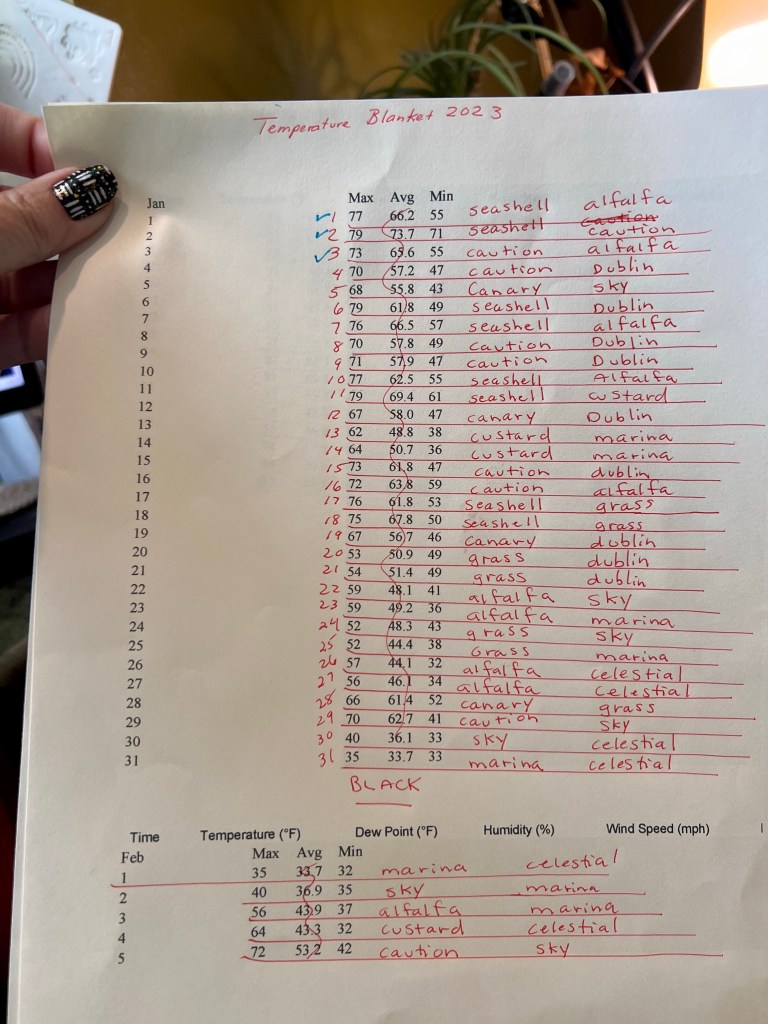 Temperature Blanket 2023
Jan Max Avg Min
1 ✓1 77 66.2 55 seashell alfalfa
2 ✓2 79 73.7 71 seashell caution caution
3 ✓3 73 65.6 55 caution alfalfa
4 4 70 57.2 47 caution Dublin
5 5 68 55.8 43 Canary sky
6 6 79 61.8 49 seashell Dublin
7 7 76 66.5 57 seashell alfalfa
8 8 70 57.8 49 caution Dublin
9 9 71 57.9 47 caution Dublin
10 10 77 62.5 55 seashell Alfalfa
11 11 79 69.4 61 seashell custard
12 12 67 58.0 47 canary Dublin
13 13 62 48.8 38 custard marina
14 14 64 50.7 36 custard marina
15 15 73 61.8 47 caution dublin
16 16 72 63.8 59 caution alfalfa
17 17 76 61.8 53 Seashell grass
18 18 75 67.8 50 seashell grass
19 19 67 56.7 46 canary dublin
20 20 53 50.9 49 grass dublin
21 21 54 51.4 49 grass dublin
22 22 59 48.1 41 alfalfa sky
23 23 59 49.2 36 alfalfa marina
24 24 52 48.3 43 grass sky
25 25 52 44.4 38 Grass marina
26 26 57 44.1 32 alfalfa celestial
27 27 56 46.1 34 alfalfa celestial
28 28 66 61.4 52 canary grass
29 29 70 62.7 41 caution sky
30 30 40 36.1 33 sky celestial
31 31 35 33.7 33 marina celestial
BLACK
Time Temperature (°F) Dew Point (°F) Humidity (%) Wind Speed (mph)
Feb Max Avg Min
1 35 33.7 32 marina celestial
2 40 36.9 35 sky marina
3 56 43.9 37 alfalfa marina
4 64 43.3 32 custard celestial
5 72 53.2 42 caution sky